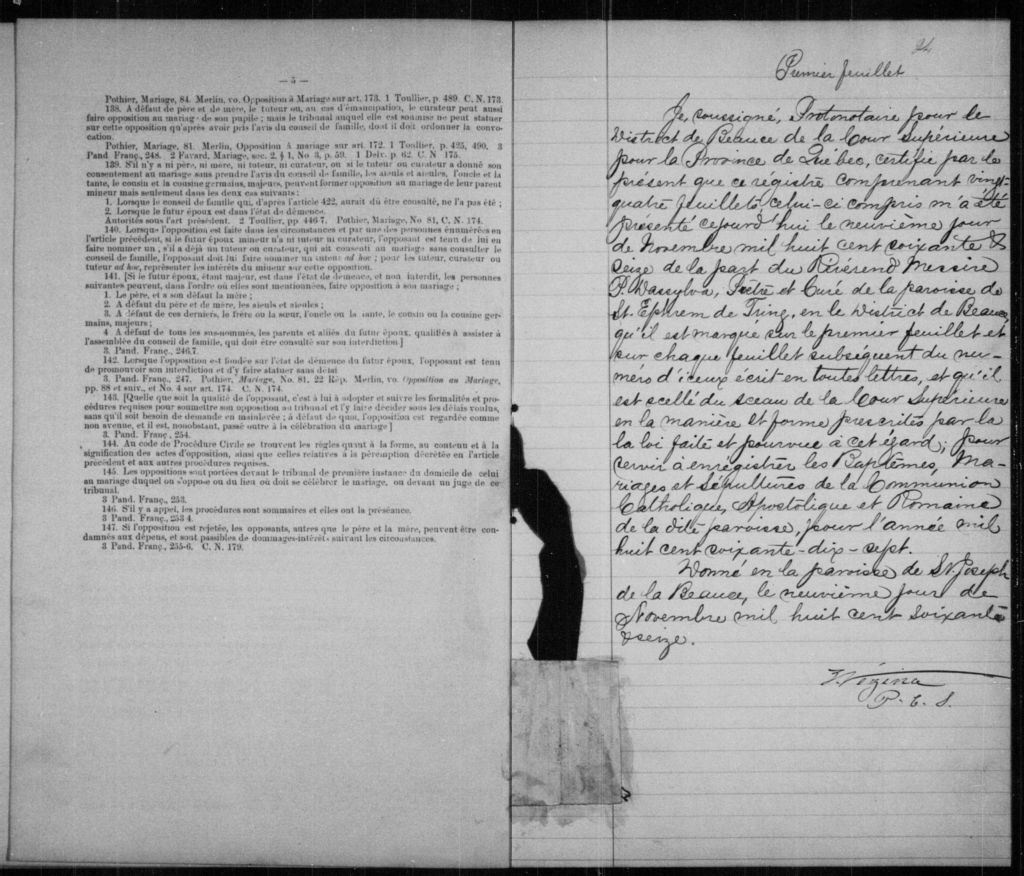 — 5 —
Pothier, Mariage, 84. Merlin, vo. Opposition à Mariage sur art. 173. 1 Toullier, p. 489. C. N. 173.
138. A défaut de père et de mère, le tuteur ou, au cas d'émancipation, le curateur peut aussi
faire opposition au mariage de son pupile ; mais le tribunal auquel elle est soumise ne peut statuer
sur cette opposition qu'après avoir pris l'avis du conseil de famille, dont il doit ordonner la convo-
cation.
Pothier, Mariage, 81. Merlin, Opposition à Mariage sur art. 172. 1 Toullier, p. 425, 490. 3
Pand Franç., 248. 2 Favard, Mariage, sec. 2, § 1, No 3, p. 59. 1 Delv. p. 62 C. N. 175.
139. S'il n'y a ni père, ni mère, ni tuteur, ni curateur, ou si le tuteur ou curateur a donné son
consentement au mariage sans prendre l'avis du conseil de famille, les aieuls et aieules, l'oncle et la
tante, le cousin et la cousine germains, majeurs, peuvent former opposition au mariage de leur parent
mineur mais seulement dans les deux cas suivants :
1. Lorsque le conseil de famille qui, d'après l'article 422, aurait dû être consulté, ne l'a pas été ;
2. Lorsque le futur époux est dans l'état de démence.
Autorités sous l'art précédent. 2 Toullier, pp 446 7. Pothier, Mariage, No 81, C. N. 174.
140. Lorsque l'opposition est faite dans les circonstances et par une des personnes énumérées en
l'article précédent, si le futur époux mineur n'a ni tuteur ni curateur, l'opposant est tenu de lui en
faire nommer un ; s'il a déjà un tuteur ou curateur, qui ait consenti au mariage sans consulter le
conseil de famille, l'opposant doit lui faire nommer un tuteur ad hoc ; pour les tuteur, curateur ou
tuteur ad hoc, représenter les intérêts du mineur sur cette opposition.
141. [Si le futur époux, étant majeur, est dans l'état de démence, et non interdit, les personnes
suivantes peuvent, dans l'ordre où elles sont mentionnées, faire opposition à son mariage ;
1. Le père, et à son défaut la mère ;
2. A défaut du père et de mère, les aieuls et aieules ;
3. A défaut de ces derniers, le frère ou la sœur, l'oncle ou la tante, le cousin ou la cousine ger-
mains, majeurs ;
4 A défaut de tous les sus-nommés, les parents et alliés du futur époux, qualifiés à assister à
l'assemblée du conseil de famille, qui doit être consulté sur son interdiction ]
3. Pand. Franç., 246,7.
142. Lorsque l'opposition est fondée sur l'état de démence du futur époux, l'opposant est tenu
de promouvoir son interdiction et d'y faire statuer sans délai
3. Pand. Franç., 247. Pothier, Mariage, No. 81. 22 Rép. Merlin, vo. Opposition au Mariage,
pp. 88 et suiv., et No. 4 sur art. 174. C. N. 174.
143. [Quelle que soit la qualité de l'opposant, c'est à lui à adopter et suivre les formalités et pro-
cédures requises pour soumettre son opposition au tribunal et l'y faire décider sous les délais voulus,
sans qu'il soit besoin de demande en mainlevée ; à défaut de quoi, l'opposition est regardée comme
non avenue, et il est, nonobstant, passé outre à la célébration du mariage ]
3. Pand. Franç., 254.
144. Au code de Procédure Civile se trouvent les règles quant à la forme, au contenu et à la
signification des actes d'opposition, ainsi que celles relatives à la péremption décrétée en l'article
précédent et aux autres procédures requises.
145. Les oppositions sont portées devant le tribunal de première instance du domicile de celui
au mariage duquel on s'oppose ou du lieu où doit se célébrer le mariage, ou devant un juge de ce
tribunal.
3 Pand. Franç., 253.
146. S'il y a appel, les procédures sont sommaires et elles ont la préséance.
3 Pand. Franç., 253 4.
147. Si l'opposition est rejetée, les opposants, autres que le père et la mère, peuvent être con-
damnés aux dépens, et sont passibles de dommages-intérêts suivant les circonstances.
3 Pand. Franç., 255-6. C. N. 179.
24
Premier feuillet
Je, soussigné, Protonotaire pour le
District de Beauce de la Cour Supérieure
pour la Province de Québec, certifie par le
présent que ce régistre comprenant vingt-
quatre feuillets celui-ci compris m'a été
présenté cejourd'hui le neuvième jour
de Novembre mil huit cent soixante &
seize de la part du Révérend Messire
P. Dassylva, Prêtre et Curé de la paroisse de
St. Ephrem de Tring, en le District de Beauce
qu'il est marqué sur le premier feuillet et
sur chaque feuillet subséquent du nu-
méro d'iceux écrit en toutes lettres, et qu'il
est scellé du sceau de la Cour Supérieure
en la manière et forme prescrites par la
la loi faite et pourvue à cet égard ; pour
servir à enrégistrer les Baptêmes, Ma-
riages et sépultures de la Communion
Catholique, Apostolique et Romaine
de la dite paroisse, pour l'année mil
huit cent soixante-dix-sept.
Donné en la paroisse de St. Joseph
de la Beauce, le neuvième jour de
Novembre mil huit cent soixante
& seize.
Z. Vézina
P. C. S.